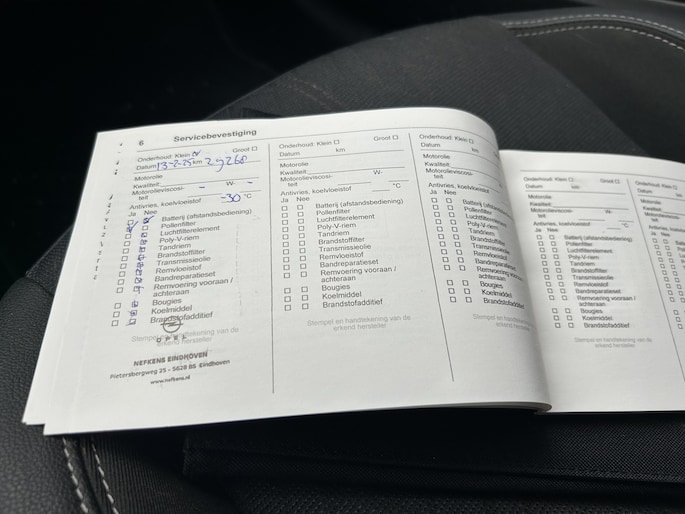 6 Servicebevestiging
Onderhoud: Klein ☑ Groot ☐
Datum 13-2-25 km
Motorolie
Kwaliteit - W- -
Motorolieviscosi-
teit
Antivries, koelvloeistof -30 °C
Ja Nee
Batterij (afstandsbediening)
Pollenfilter
Luchtfilterelement
Poly-V-riem
Tandriem
Brandstoffilter
Transmissieolie
Remvloeistof
Bandreparatieset
Remvoering vooraan /
achteraan
Bougies
Koelmiddel
Brandstofadditief
OPEL
Stempel en handtekening van de
erkend hersteller
NEFKENS EINDHOVEN
Pietersbergweg 25 - 5628 BS Eindhoven
www.nefkens.nl
Onderhoud: Klein ☐ Groot ☐
Datum km
Motorolie
Kwaliteit W-
Motorolieviscosi-
teit
Antivries, koelvloeistof °C
Ja Nee
Batterij (afstandsbediening)
Pollenfilter
Luchtfilterelement
Poly-V-riem
Tandriem
Brandstoffilter
Transmissieolie
Remvloeistof
Bandreparatieset
Remvoering vooraan /
achteraan
Bougies
Koelmiddel
Brandstofadditief
Stempel en handtekening van de
erkend hersteller
Onderhoud: Klein ☐
Datum km
Motorolie
Kwaliteit
Motorolieviscosi-
teit
Antivries, koelvloeistof
Ja Nee
Pollenfilter
Luchtfilterelement
Poly-V-riem
Tandriem
Brandstoffilter
Transmissieolie
Remvloeistof
Bandreparatieset
Remvoering
achteraan
Bougies
Koelmiddel
Stempel en handtekening
erkend
Onderhoud: Klein ☐ Groot ☐
Datum km
Motorolie
Kwaliteit W-
Motorolieviscosi-
teit
Antivries, koelvloeistof °C
Ja Nee
Batterij (afstandsbediening)
Pollenfilter
Luchtfilterelement
Poly-V-riem
Tandriem
Brandstoffilter
Transmissieolie
Remvloeistof
Bandreparatieset
Remvoering vooraan /
achteraan
Bougies
Koelmiddel
Brandstofadditief
Stempel en handtekening van de
erkend hersteller
Onderhoud: Klein ☐
Datum
Motorolie
Kwaliteit
teit
Antivries,
Ja Nee